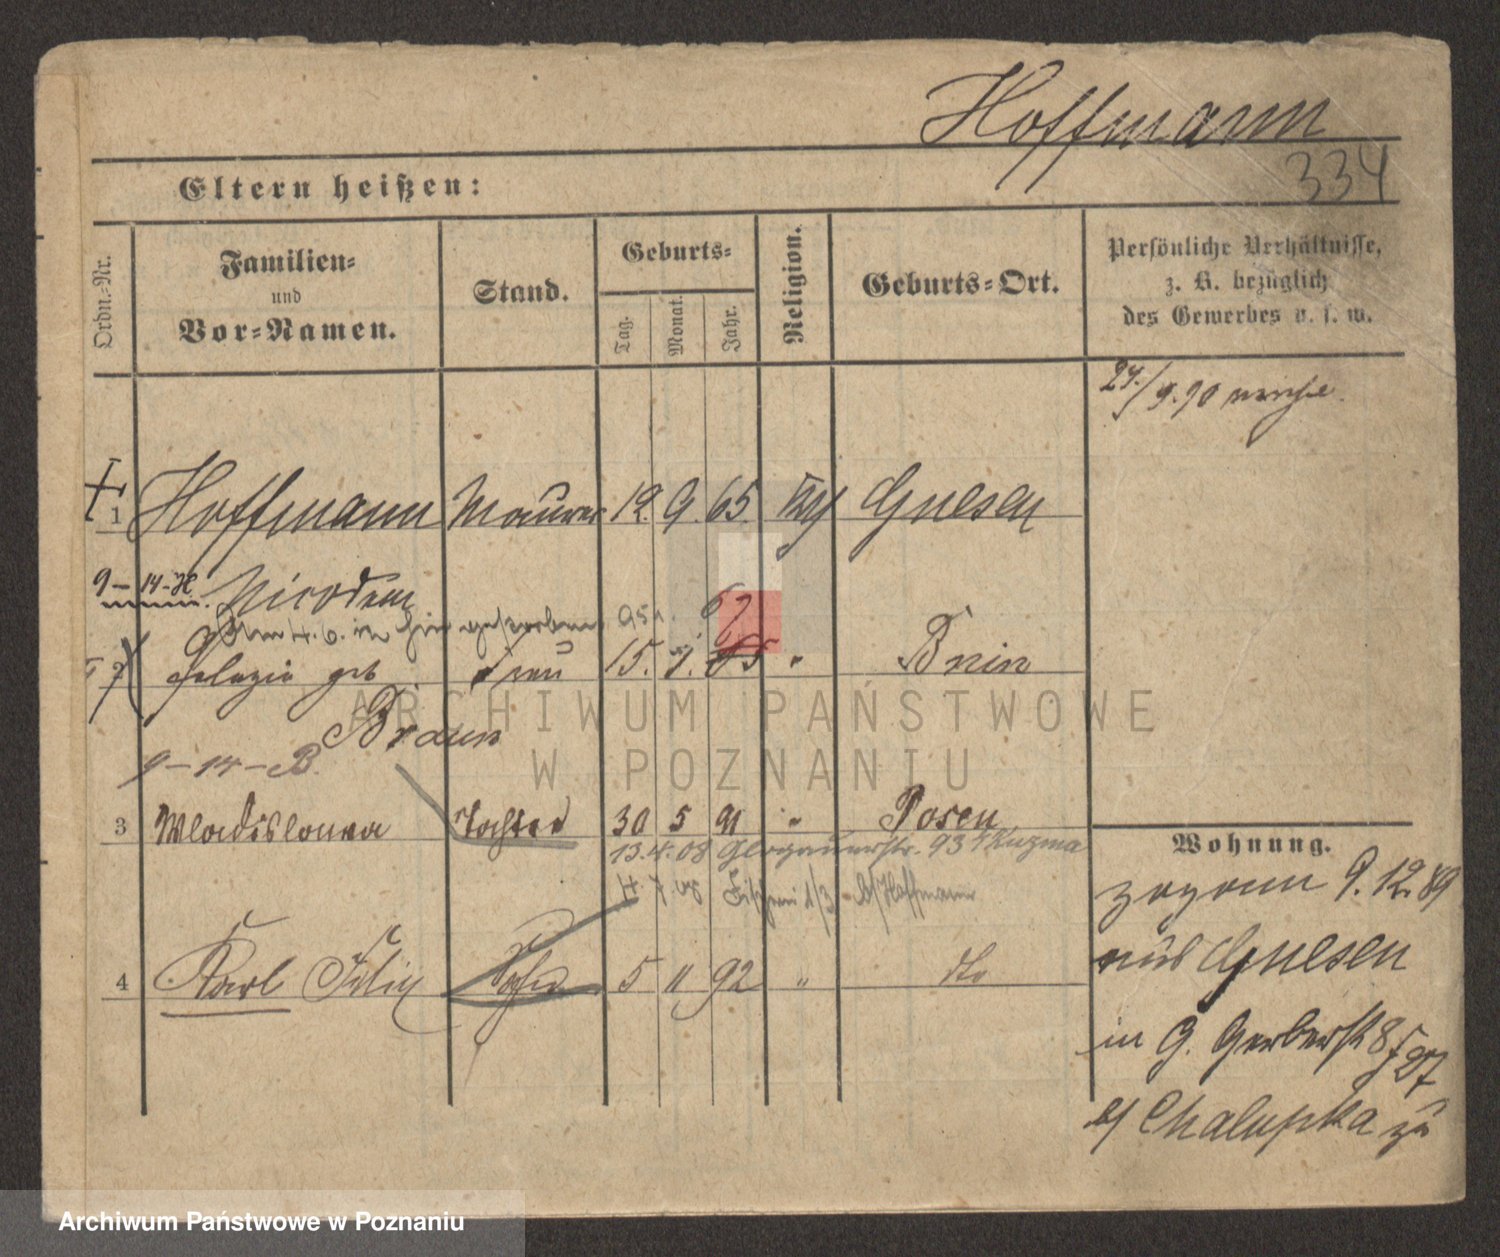 Hoffmann
334
Eltern heißen:
Ordn.-Nr.
Familien-
und
Vor-Namen.
Stand.
Geburts-
Tag.
Monat.
Jahr.
Religion.
Geburts-Ort.
Persönliche Verhältnisse,
z. B. bezüglich
des Gewerbes u. s. w.
24./9.90
1 Hoffmann Maurer 12. 9. 65. Gnesen
9-14-H. Nicodem
4. 6. gestorben 95
67
2 geb Frau 15. 1. 65 " Bnin
Braun
9-14-B.
3 Wladislawa Tochter 30 5 91 " Posen
13.4.08 Glogauerstr. 93 Kuzma
4. 7. 08 b/Hoffmann
4 Karl Felix 5 11 92 " dto
Wohnung.
zogen 9.12.89
aus Gnesen
in G. Gerberstr 8
b/ Chalupka zu
ARCHIWUM PAŃSTWOWE
W POZNANIU
Archiwum Państwowe w Poznaniu